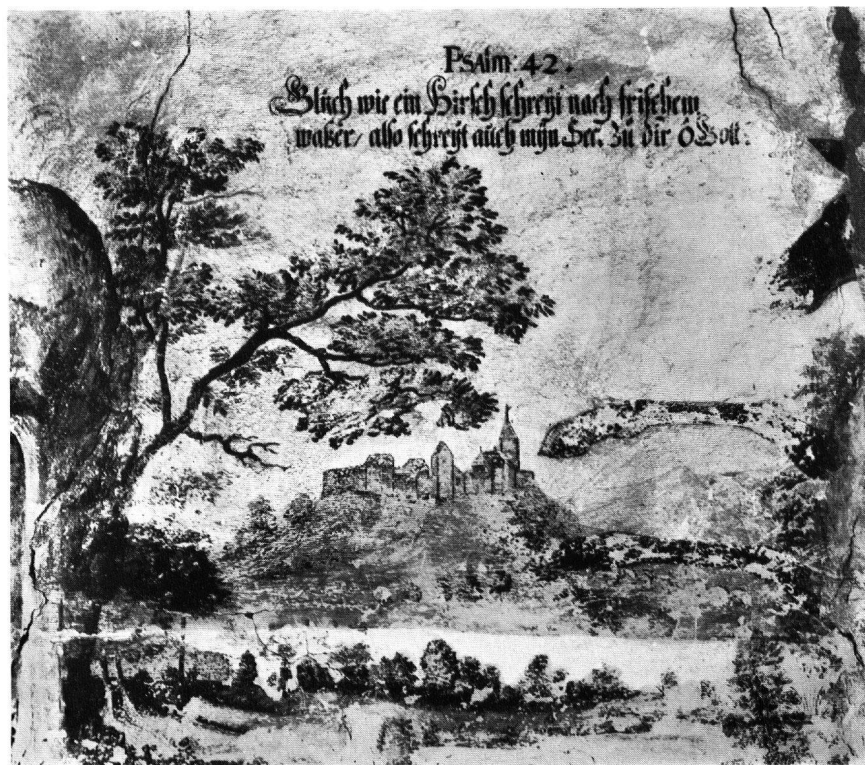 PSalm: 42.
Glÿch wie ein Hirsch schreyt nach frischem
waßer/ also schreyt auch mÿn Seel zů dir ô Gott: